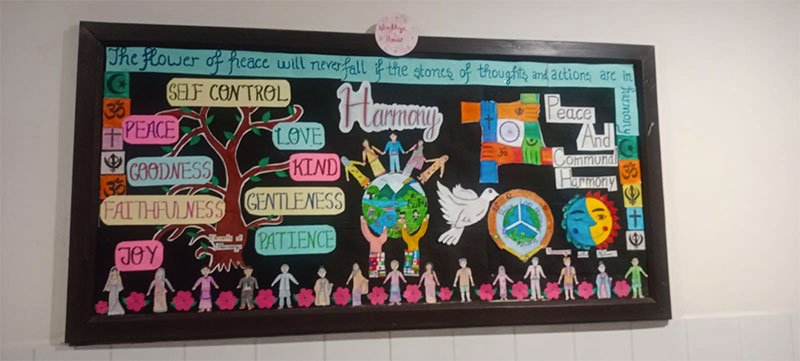 Vindhya
House
The flower of peace will never fall if the stones of thoughts and actions are in harmony
SELF CONTROL
PEACE
LOVE
GOODNESS
KIND
FAITHFULNESS
GENTLENESS
JOY
PATIENCE
Harmony
Peace
And
Communal
Harmony